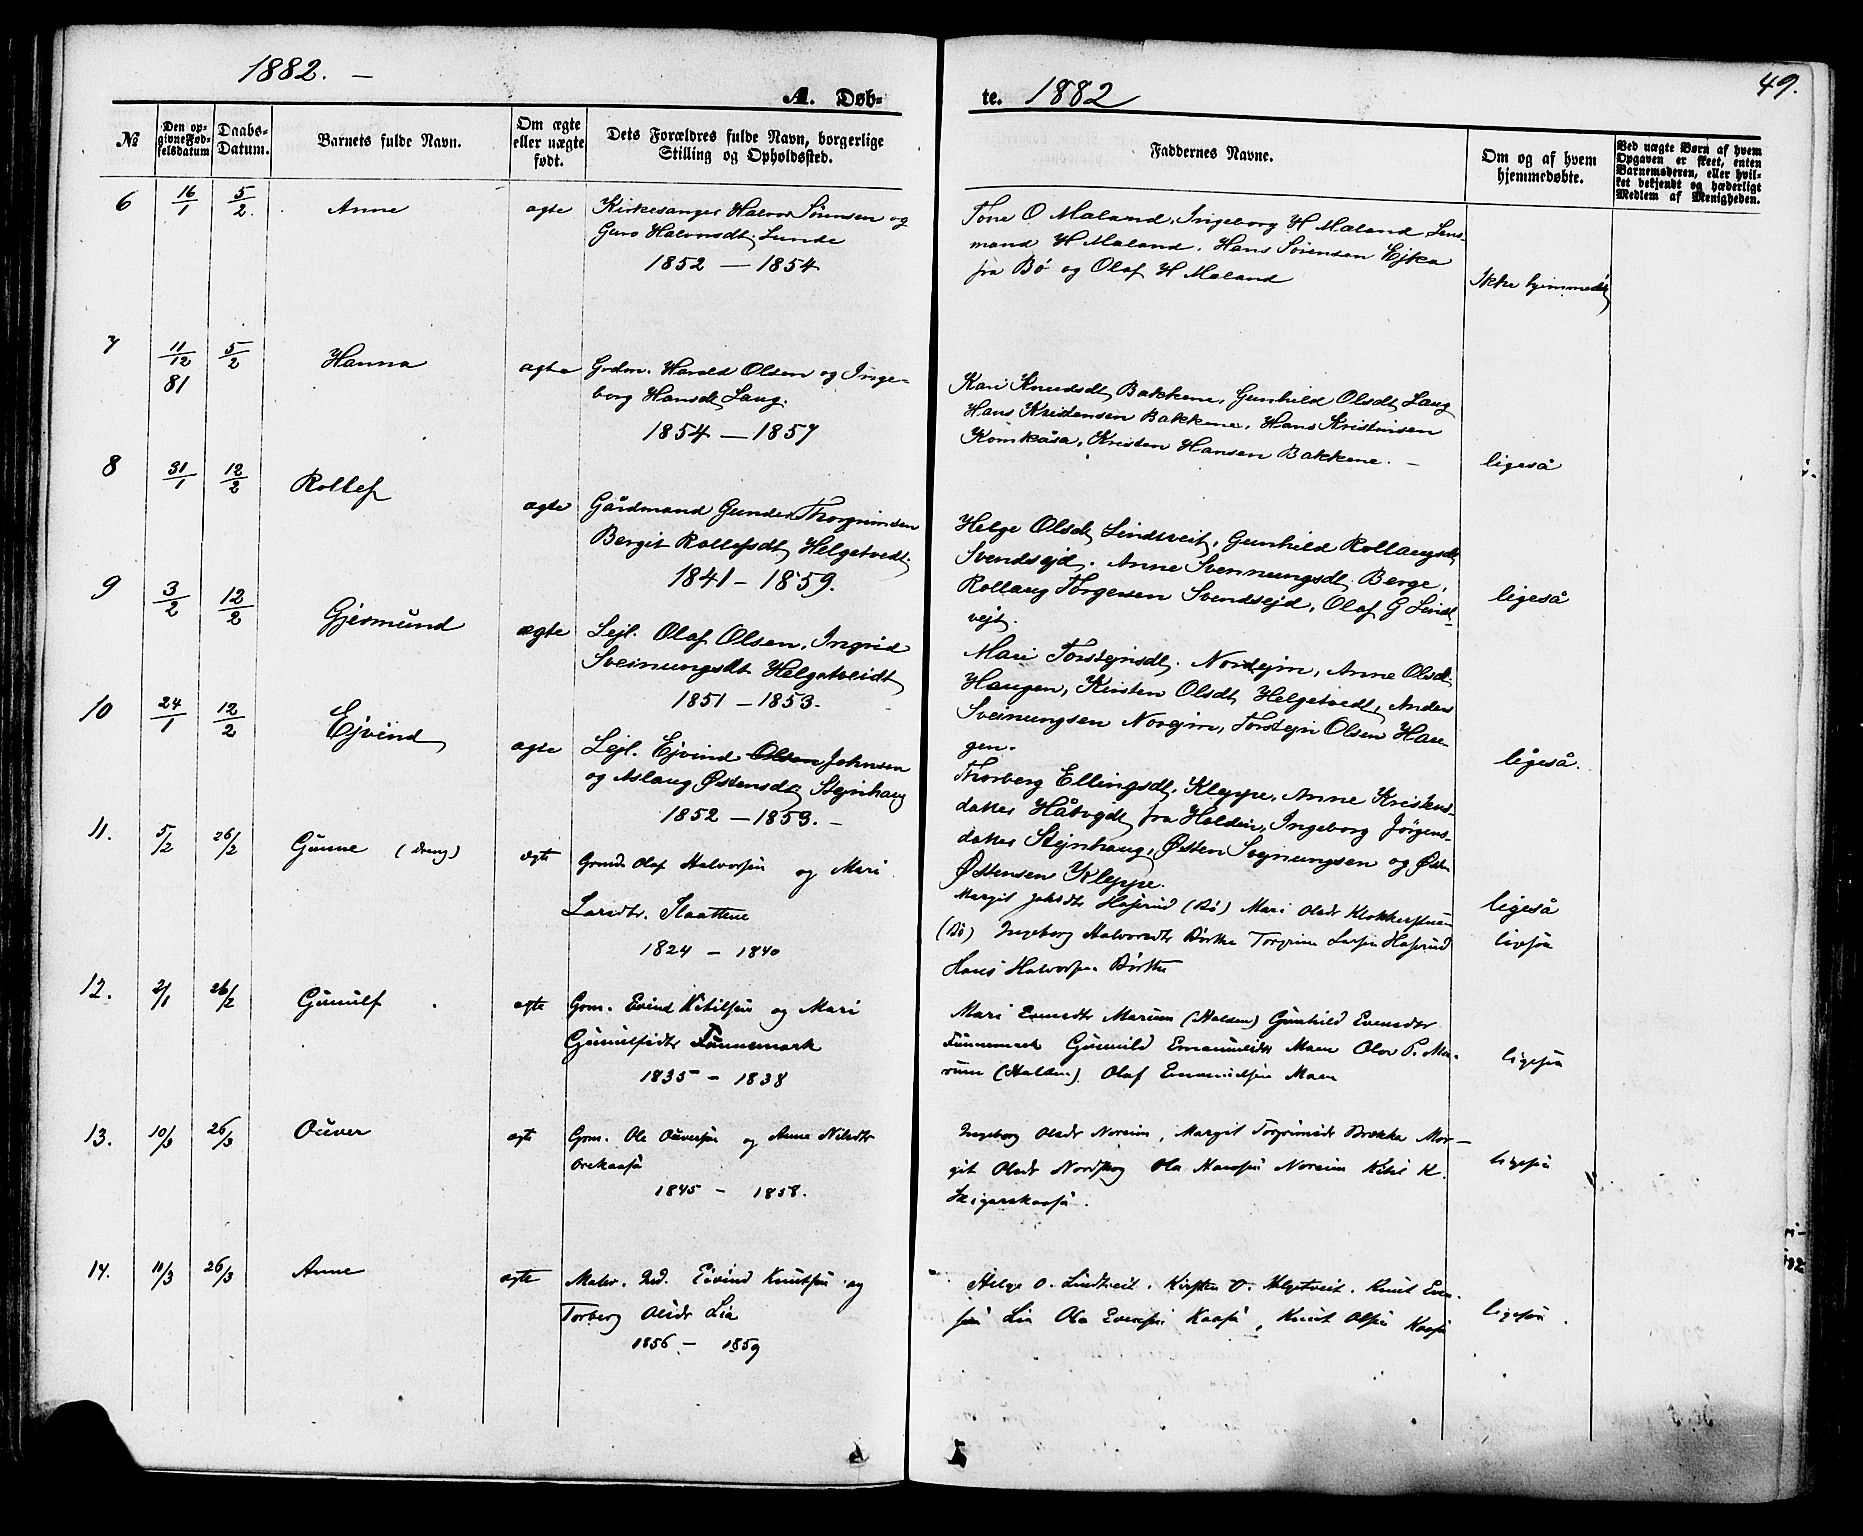 1882. —
A. Døb-
te. 1882
49.
№
Den op-
givne Fød-
selsdatum
Daabs-
Datum.
Barnets fulde Navn.
Om ægte
eller uægte
født.
Dets Forældres fulde Navn, borgerlige
Stilling og Opholdssted.
Faddernes Navne.
Om og af hvem
hjemmedøbte.
Ved uægte Børn af hvem
Opgaven er skeet, enten
Barnemoderen, eller hvil-
ket bekjendt og hæderligt
Medlem af Menigheden.
6 16/1 5/2. Anne ægte Kirkesanger Halvor Sørensen og
Guro Halvorsdt. Lunde
1852 — 1854
Tone O Mæland, Ingeborg H Mæland, Lens-
mand H Mæland, Hans Sørensen Ejka
fra Bø og Olaf H Mæland
Ikke hjemmedøbt
7 11/12 81 5/2 Hanna ægte Grdm. Harald Olsen og Inge-
borg Hansdt. Laug.
1854 — 1857
Kari Knudsdt. Bakkene, Gunhild Olsdt. Laug
Hans Kristensen Bakkene, Hans Kristensen
Kåsa, Kristen Hansen Bakkene. —
ligeså
8 31/1 12/2 Rollef ægte Gårdmand Gunder Thorgrimsen
Bergit Rollefsdt. Helgetvedt.
1841 - 1859.
Helge Olsdt. Lindtveit, Gunhild Rollaugsdt.
Svendsejd. Anne Svennungsdt. Berge,
Rollaug Torgersen Svendsejd, Olaf G Lindt-
vejt.
ligeså
9 3/2 12/2 Gjermund ægte Lejl. Olaf Olsen, Ingrid
Sveinungsdt. Helgetveidt
1851 — 1853.
Mari Torstejnsdt. Nordejm, Anne Olsdt.
Haugen, Kirsten Olsdt. Helgetvedt, Anders
Sveinungsen Norejm, Torstejn Olsen Hau-
gen.
ligeså.
10 24/1 12/2 Ejvind ægte Lejl. Ejvind Olsen Johnsen
og Aslaug Østensdt. Stejnhaug
1852 — 1853. —
Thorberg Ellingsdt. Kleppe, Anne Kristens-
datter Håtvedt fra Holden, Ingeborg Jørgens-
datter Stejnhaug, Østen Svejnungsen og
Østensen Kleppe.
ligeså
11. 5/2 26/2 Gunne (Dreng) ægte Grmd. Olaf Halvorsen og Mari
Larsdtr. Slaattene
1824 — 1840
Margit Haserud (Bø) Mari Olsdr
(Bø) Ingeborg Halvorsdtr Børte Torgrim Larsen Haserud
Hans Halvorsen Børte
ligesaa
12. 2/1 26/2 Gunulf ægte Grm. Eivind Kitilsen og Mari
Gunulfsdtr Funnemark
1835 — 1838
Mari Evensdtr Marum (Holden) Gunhild Evensdtr
Funnemark Gunnild Emanuelsdr Moen Olav P. Ma-
rum (Holden). Olaf Emanuelsen Moen
ligesaa
13. 10/3 26/3 Ouver ægte Grm. Ole Ouversen og Anne Nilsdtr
Orekaasa
1845 — 1858.
Ingeborg Olsdr Noreim, Margit Torgrimsdr Brekka Mar-
git Olsdr Nordskog Ola Hansen Noreim Kitil K.
Skigerskaasa.
ligesaa
14. 11/3 26/3 Anne ægte Eivind Knutsen og
Torberg Olsdr Lia
1856 — 1859
Helge O. Lindtveit. Kirsten O. Helgetveit. Knut Even-
sen Lia Ola Evensen Kaasa, Knut Olsen Kaasa
ligesaa.